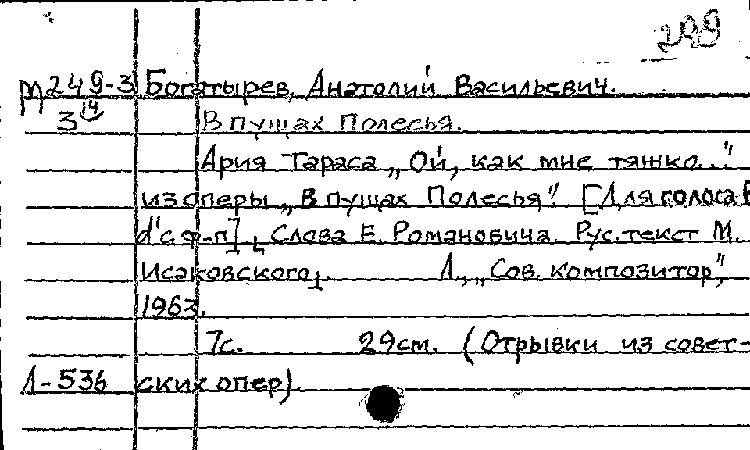 299
М249-3 Богатырев, Анатолий Васильевич.
3 14 В пущах Полесья.
Ария Тараса „Ой, как мне тяжко..."
из оперы „В пущах Полесья". [Для голоса
d² с ф-п]. Слова Е. Романовича. Рус. текст М.
Исаковского. Л., „Сов. композитор",
1963.
7с. 29см. (Отрывки из совет-
Л-536 ских опер).